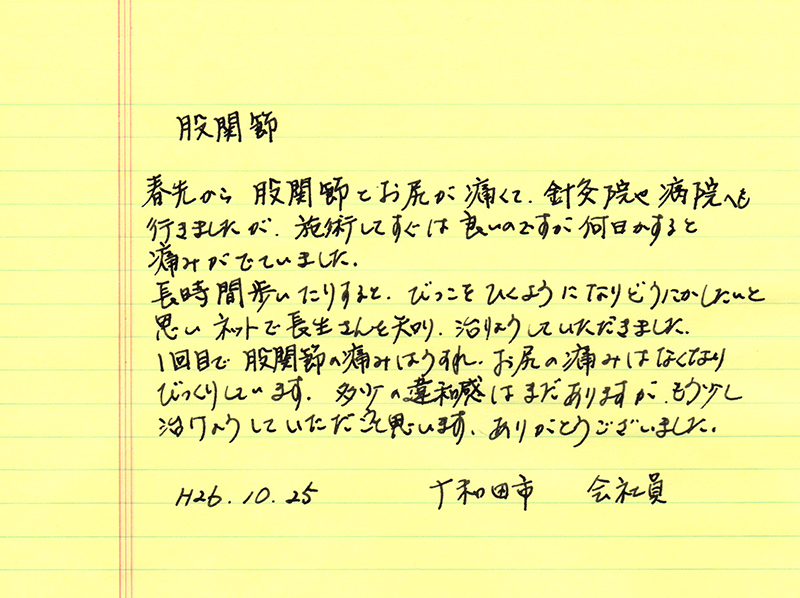 股関節
春先から 股関節とお尻が痛くて、針灸院や病院へも
行きましたが、施術してすぐは良いのですが何日かすると
痛みがでていました。
長時間歩いたりすると、びっこをひくようになりどうにかしたいと
思いネットで長生さんを知り、治りょうしていただきました。
1回目で股関節の痛みはうすれ、お尻の痛みはなくなり
びっくりしています。多少の違和感はまだありますが、もう少し
治りょうしていただこうと思います。ありがとうございました。
H26.10.25 十和田市 会社員